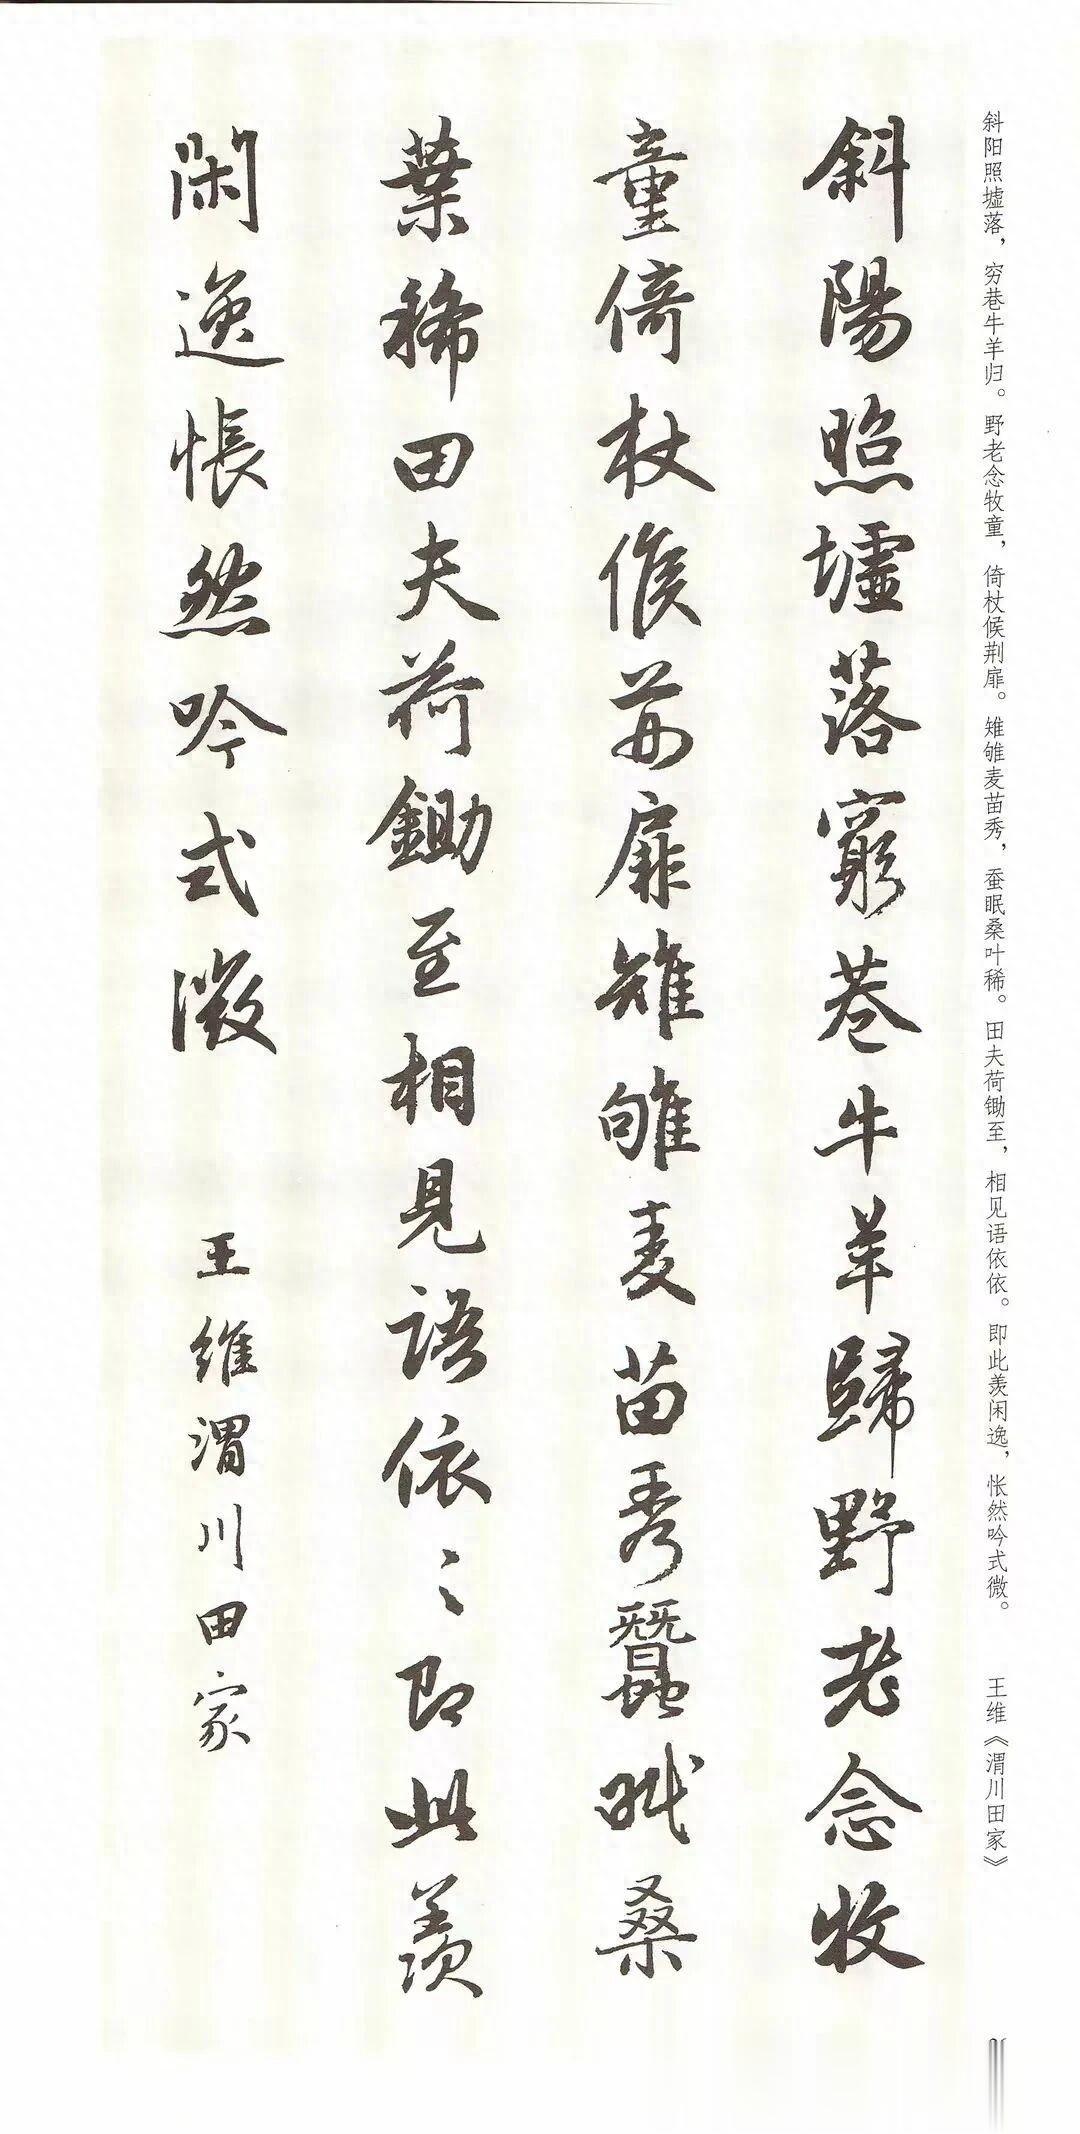 斜阳照墟落，穷巷牛羊归。野老念牧童，倚杖候荆扉。雉雊麦苗秀，蚕眠桑叶稀。田夫荷锄至，相见语依依。即此羡闲逸，怅然吟式微。 王维《渭川田家》
斜陽照墟落窮巷牛羊歸野老念牧
童倚杖候荊扉雉雊麦苗秀蠶眠桑
葉稀田夫荷鋤至相見語依〻即此羨
閑逸悵然吟式微 王維渭川田家